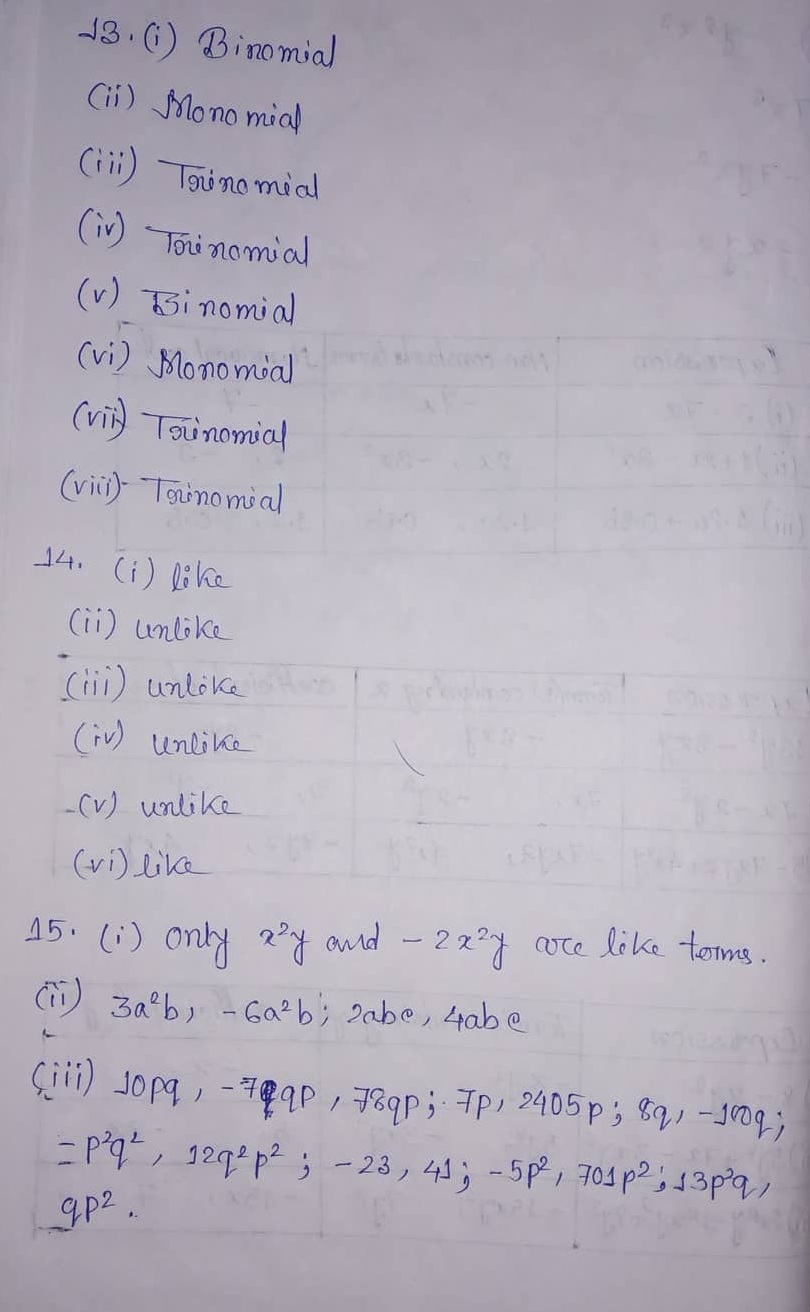 13. (i) Binomial
(ii) Monomial
(iii) Trinomial
(iv) Trinomial
(v) Binomial
(vi) Monomial
(vii) Trinomial
(viii) Trinomial
14. (i) like
(ii) unlike
(iii) unlike
(iv) unlike
(v) unlike
(vi) like
15. (i) only x²y and - 2x²y are like terms.
(ii) 3a²b, -6a²b; 2abc, 4abc
(iii) 10pq, -7qp, 78qp; 7p, 2405p; 8q, -100q;
-p²q², 12q²p²; -23, 41; -5p², 701p²; 13p²q,
qp².